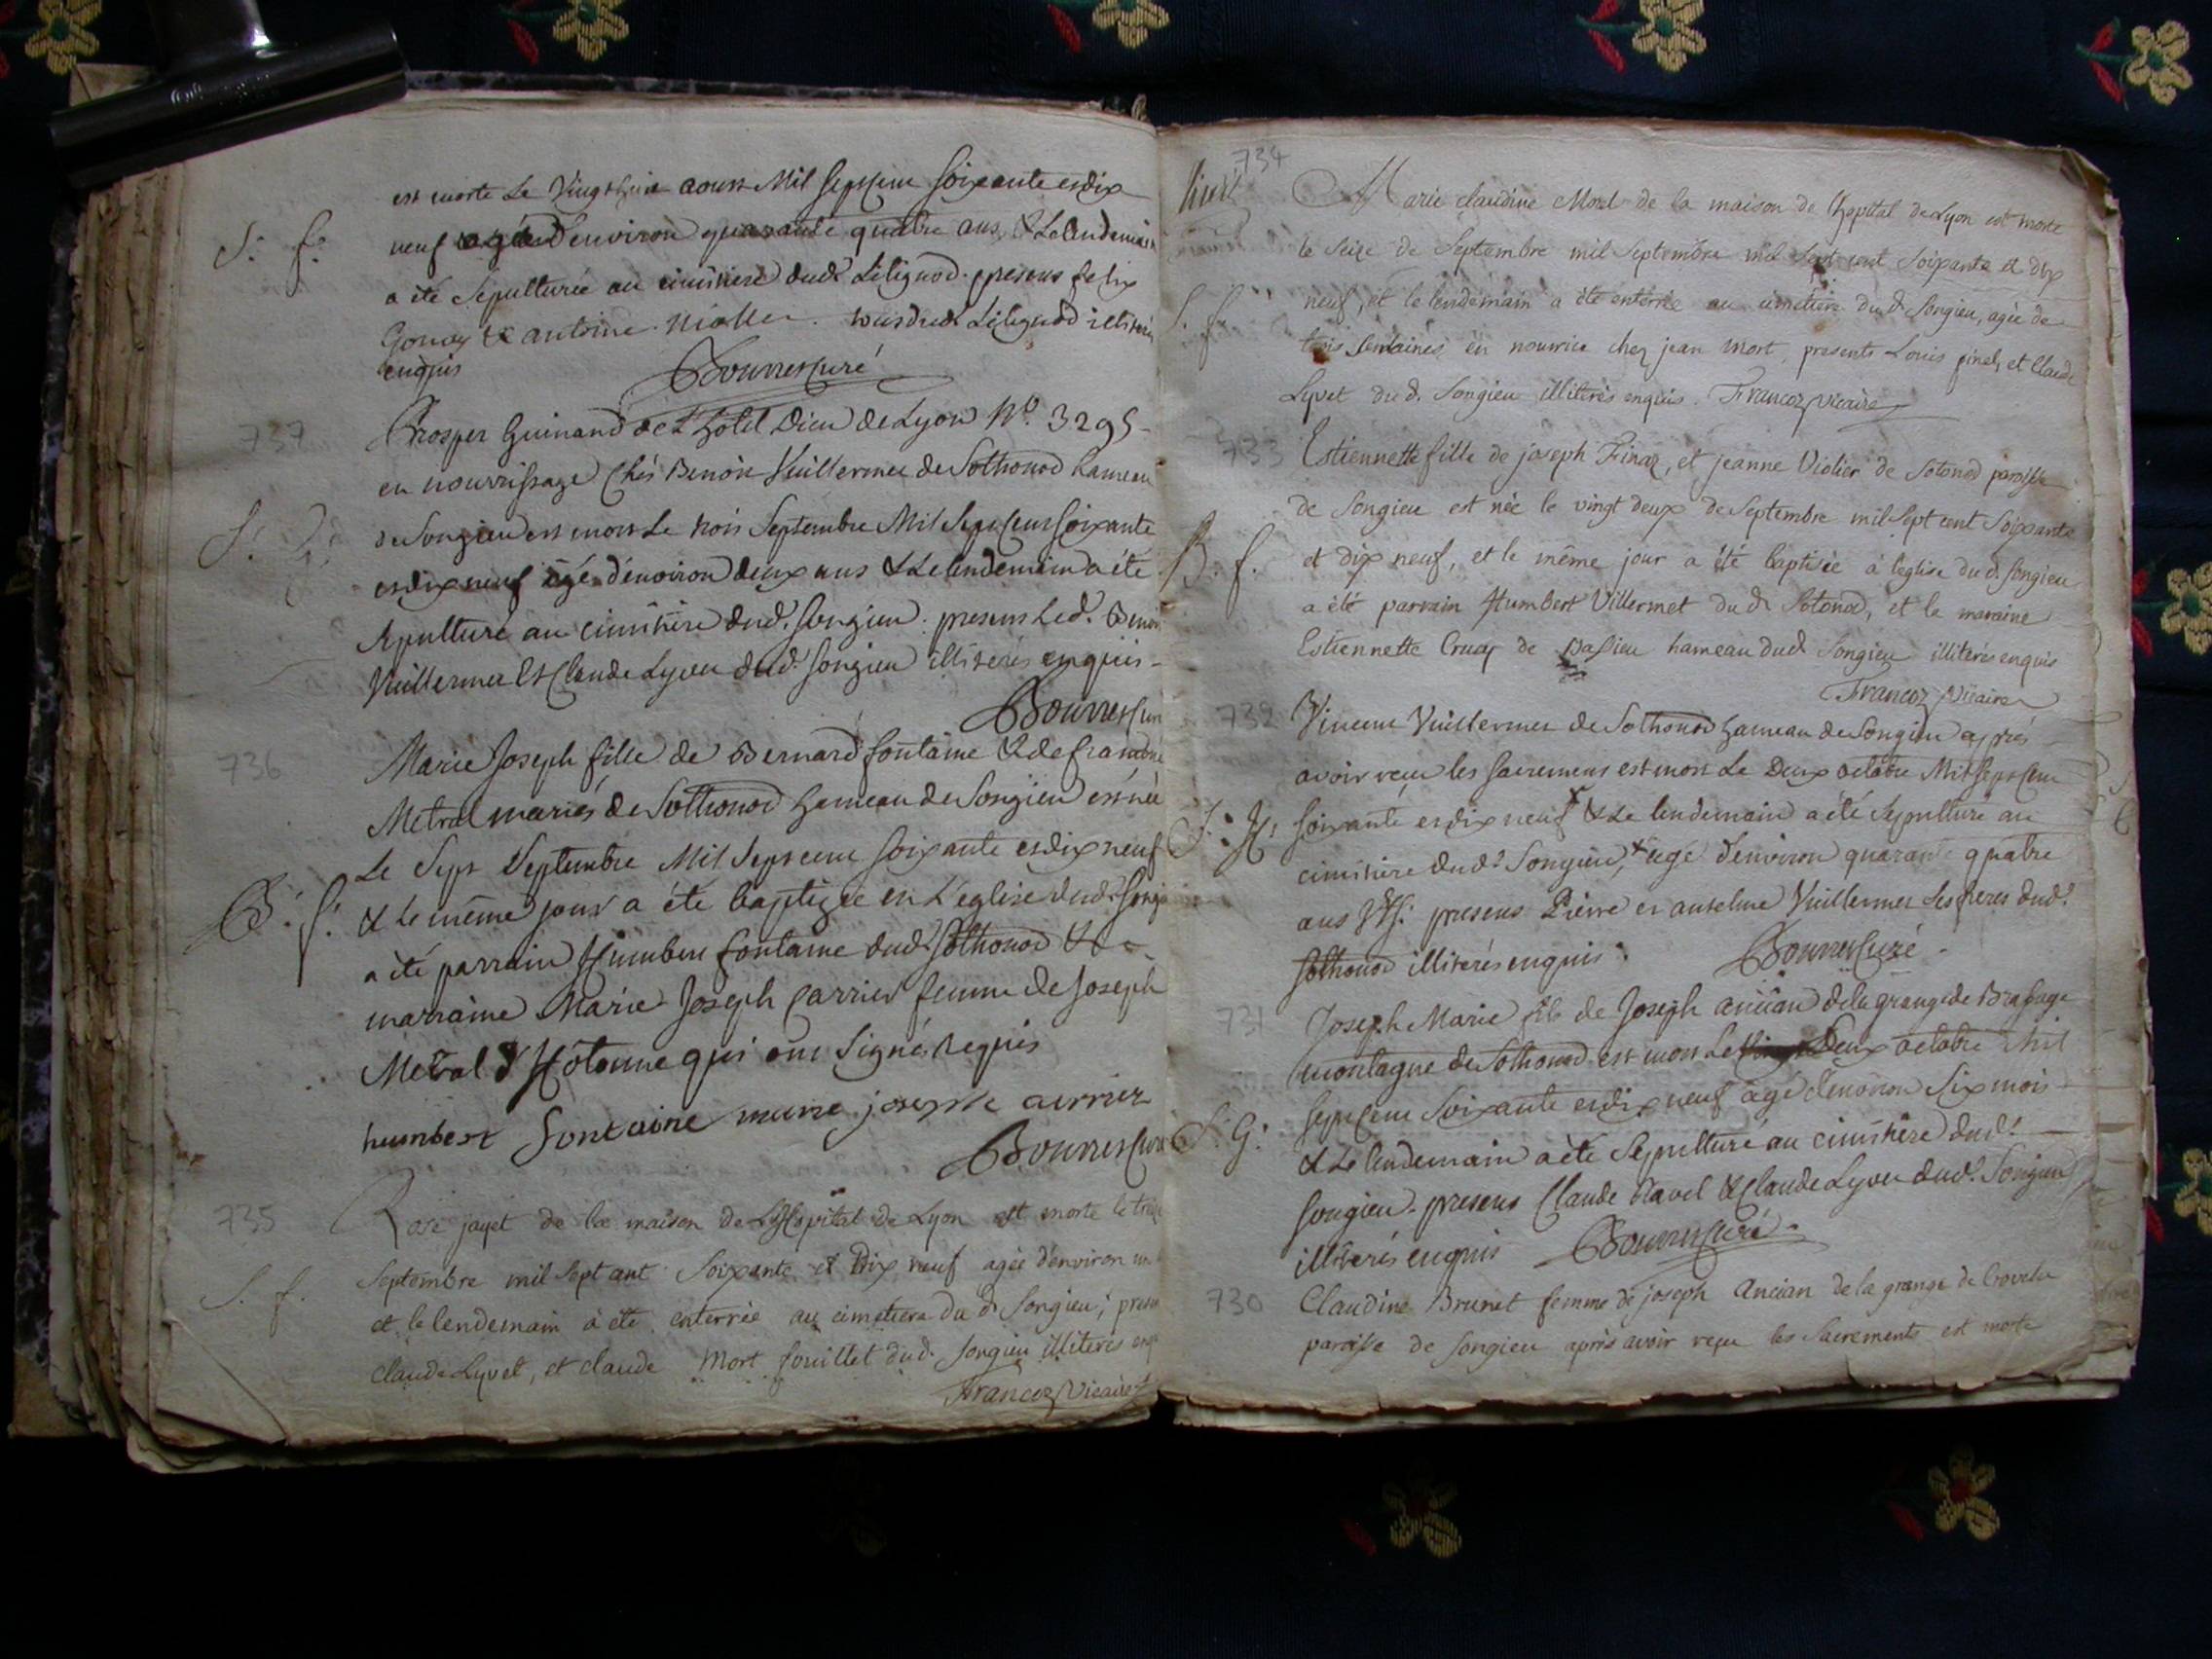 est morte Le Vingt huit aoust Mil Septcent soixante et dix
S: f: neuf agée d'environ quarante quatre ans, & Le lendemain
a été sépulturée au cimitiere dud. Lilignod. presens felix
Gonay & antoine tous dud. Lilignod illiterés
enquis Bourres Curé
737 Prosper Guinand de L'hotel Dieu de Lyon N.º 3295
en nourrissage Chés Benoit Vuillermet de Sothonod hameau
de Songieu est mort Le trois Septembre Mil Sept Cent Soixante
et dix neuf âgé d'environ deux ans & Le lendemain a été
sépulturé au cimitiere dud. Songieu. presens Led. Benoit
Vuillermet et Claude Lyvet dud. Songieu illiterés enquis
Bourres Curé
736 Marie Joseph fille de Bernard fontaine & de francoise
Metral mariés de Sothonod hameau de Songieu est née
Le Sept Septembre Mil Sept cent soixante et dix neuf
B: f: & Le même jour a été baptizée en L'église dud. Songieu
a été parrain Humbert fontaine dud. Sothonod & La
marraine Marie Joseph Carrier femme de Joseph
Metral d'Hôtonne qui ont signé requis
humbert fontaine marie josephe carrier
Bourres Curé
735 Rose jayet de la maison de L'Hopital de Lyon est morte le treize
Septembre mil sept cent Soixante et Dix neuf agée d'environ un
S. f. et le lendemain à été enterrée au cimetiere du d. Songieu; presents
Claude Lyvet, et claude Mort fouillet du d. Songieu illiterés enquis
Francoz Vicaire
734
Marie claudine Mort de la maison de l'hopital de Lyon est morte
le seize de Septembre mil Septembre mil Sept cent soixante et dix
S. f. neuf, et le lendemain a été enterrée au cimetiere du d. Songieu, agée de
trois semaines en nourrice chez jean mort, presents Louis pinel, et Claude
Lyvet du d. Songieu illiterés enquis. Francoz vicaire
733 Estiennette fille de joseph Finaz, et jeanne Violier de Sotonod paroisse
de Songieu est née le vingt deux de Septembre mil Sept cent Soixante
B. f. et dix neuf, et le même jour a été baptisée à l'eglise du d. Songieu
a été parrain Humbert Villermet du d. Sotonod, et la maraine
Estiennette Cruaz de Bassieu hameau dud. Songieu illiterés enquis
Francoz Vicaire
732 Vincent Vuillermet de Sothonod hameau de Songieu après
avoir reçu les sacremens est mort Le Deux octobre Mil Sept Cent
S: H: soixante et dix neuf & Le lendemain a été sépulturé au
cimitiere dud. Songieu, agé d'environ quarante quatre
ans presens Pierre et anselme Vuillermet ses freres dud.
Sothonod illiterés enquis. Bourres Curé
731 Joseph Marie fils de Joseph ancian de la grange de
montagne de Sothonod est mort Le Deux octobre Mil
Sept Cent Soixante et dix neuf âgé d'environ Six mois
S: G: & Le lendemain a été sépulturé au cimitiere dud.
Songieu. presens Claude & Claude Lyvet dud. Songieu
illiterés enquis Bourres Curé
730 Claudine Brunet femme de joseph Ancian de la grange de
paroisse de Songieu après avoir reçu les Sacrements est morte